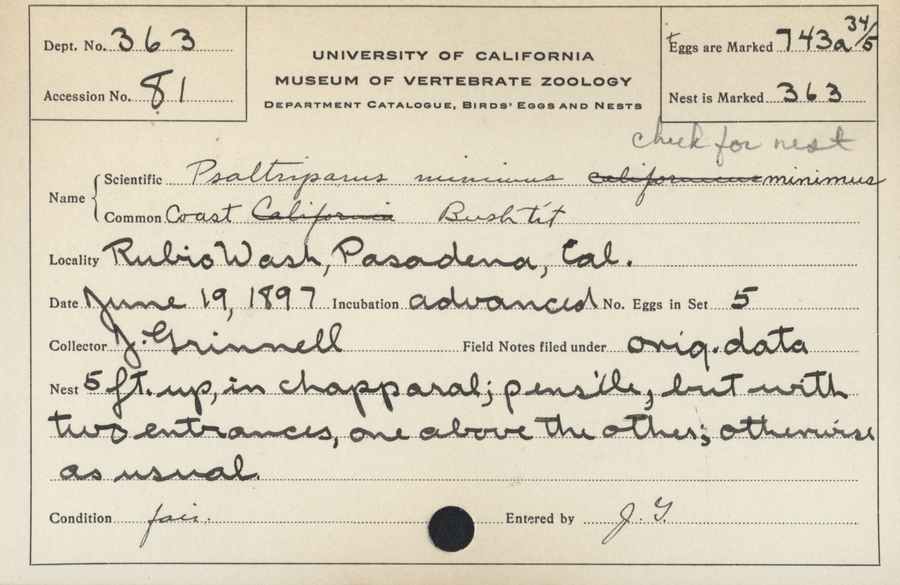 Dept. No. 363
Accession No. 81
UNIVERSITY OF CALIFORNIA
MUSEUM OF VERTEBRATE ZOOLOGY
DEPARTMENT CATALOGUE, BIRDS' EGGS AND NESTS
Eggs are Marked 743a 34/5
Nest is Marked 363
check for nest
Name
Scientific Psaltriparus minimus californicus minimus
Common Coast California Bushtit
Locality Rubio Wash, Pasadena, Cal.
Date June 19, 1897 Incubation advanced No. Eggs in Set 5
Collector J. Grinnell Field Notes filed under orig. data
Nest 5 ft. up, in chapparal; pensile, but with
two entrances, one above the other; otherwise
as usual.
Condition fair. Entered by J. G.